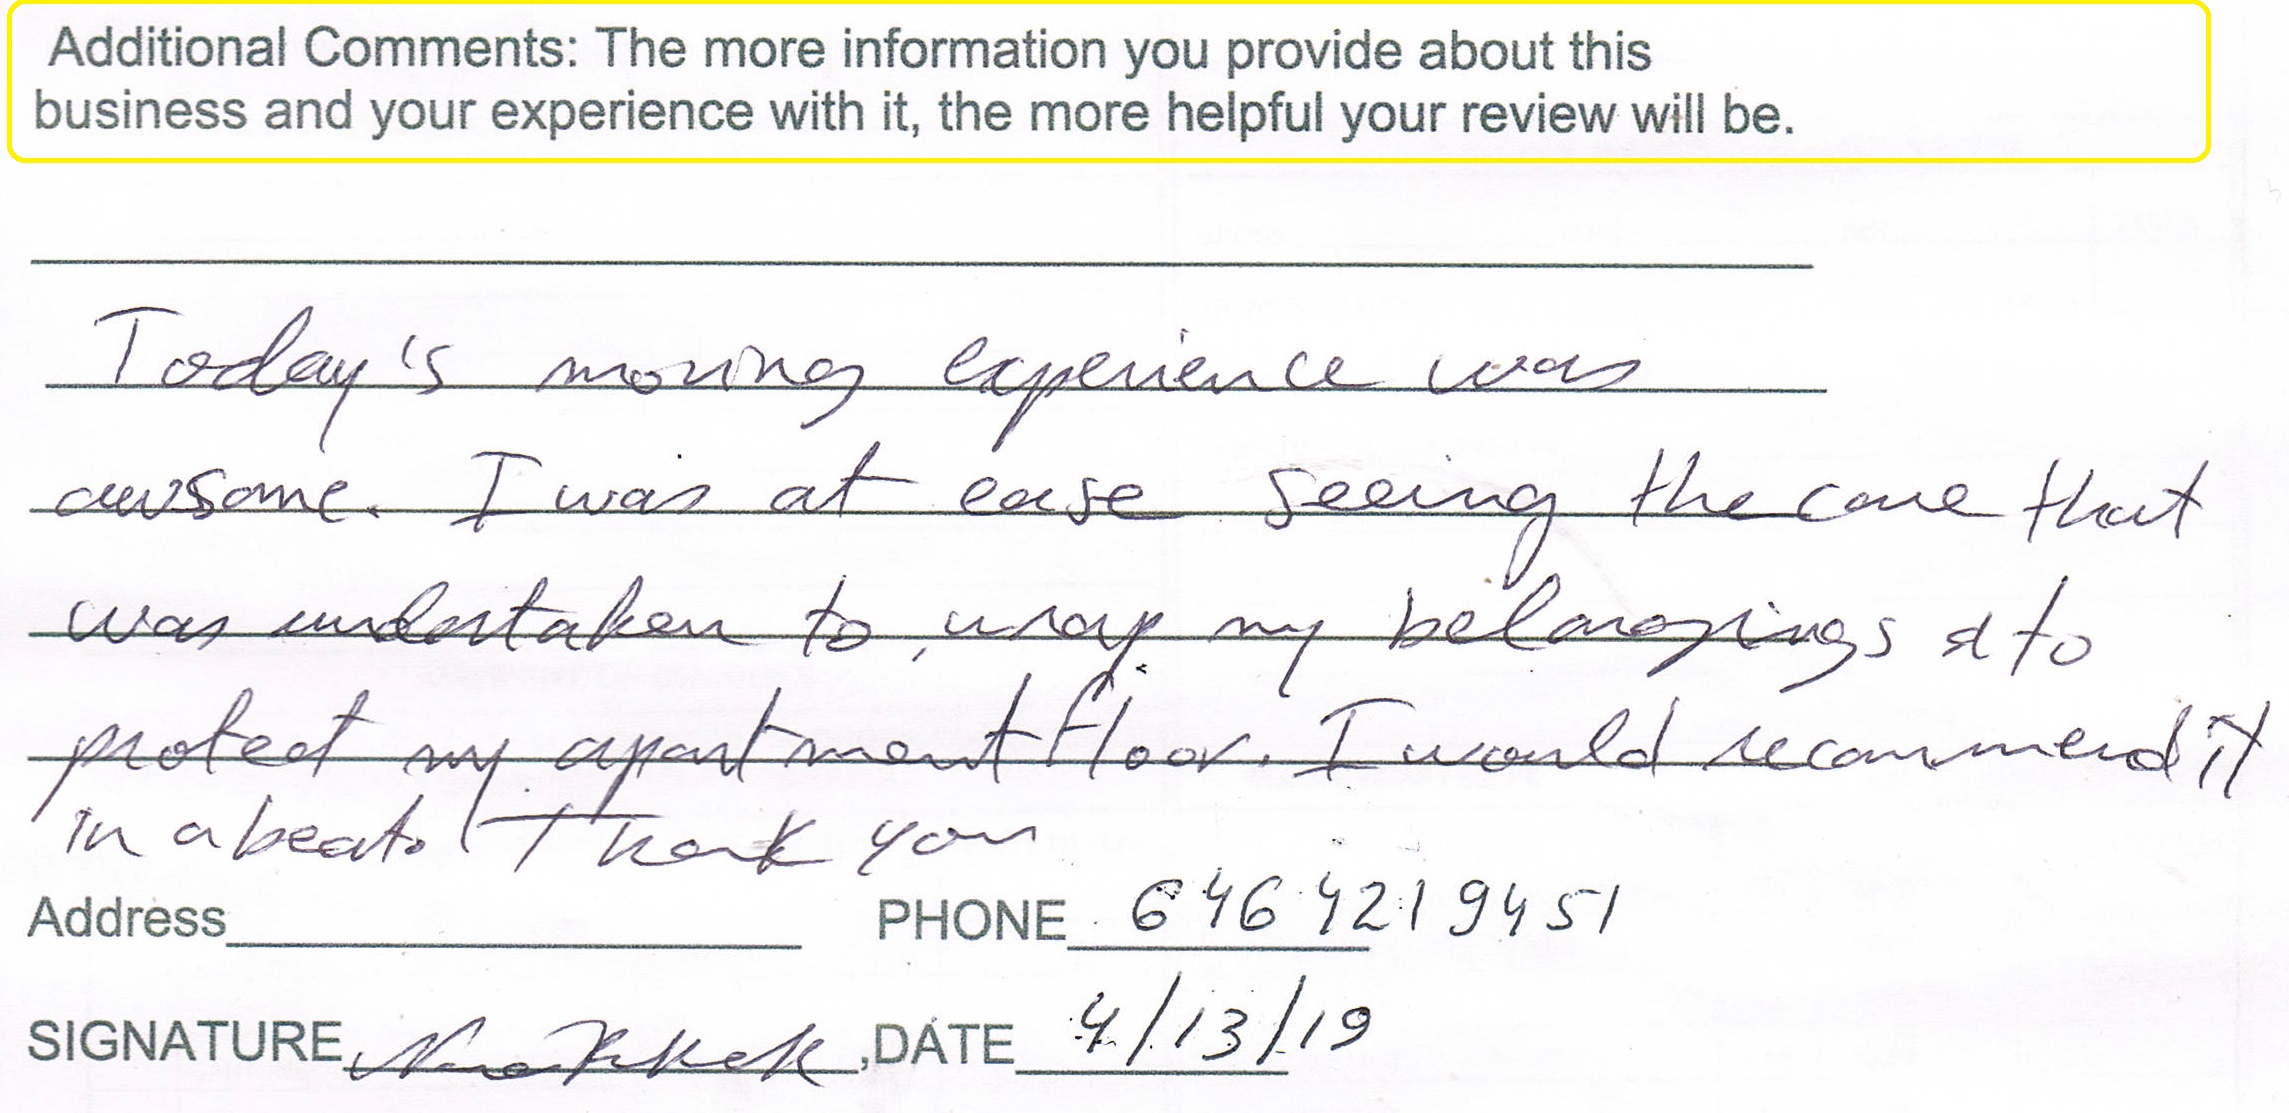 Additional Comments: The more information you provide about this
business and your experience with it, the more helpful your review will be.
Today's moving experience was
awsome. I was at ease seeing the care that
was undertaken to wrap my belongings & to
protect my apartment floor. I would recommend it
in a beat! Thank you
Address PHONE 646 421 9451
SIGNATURE ,DATE 4/13/19